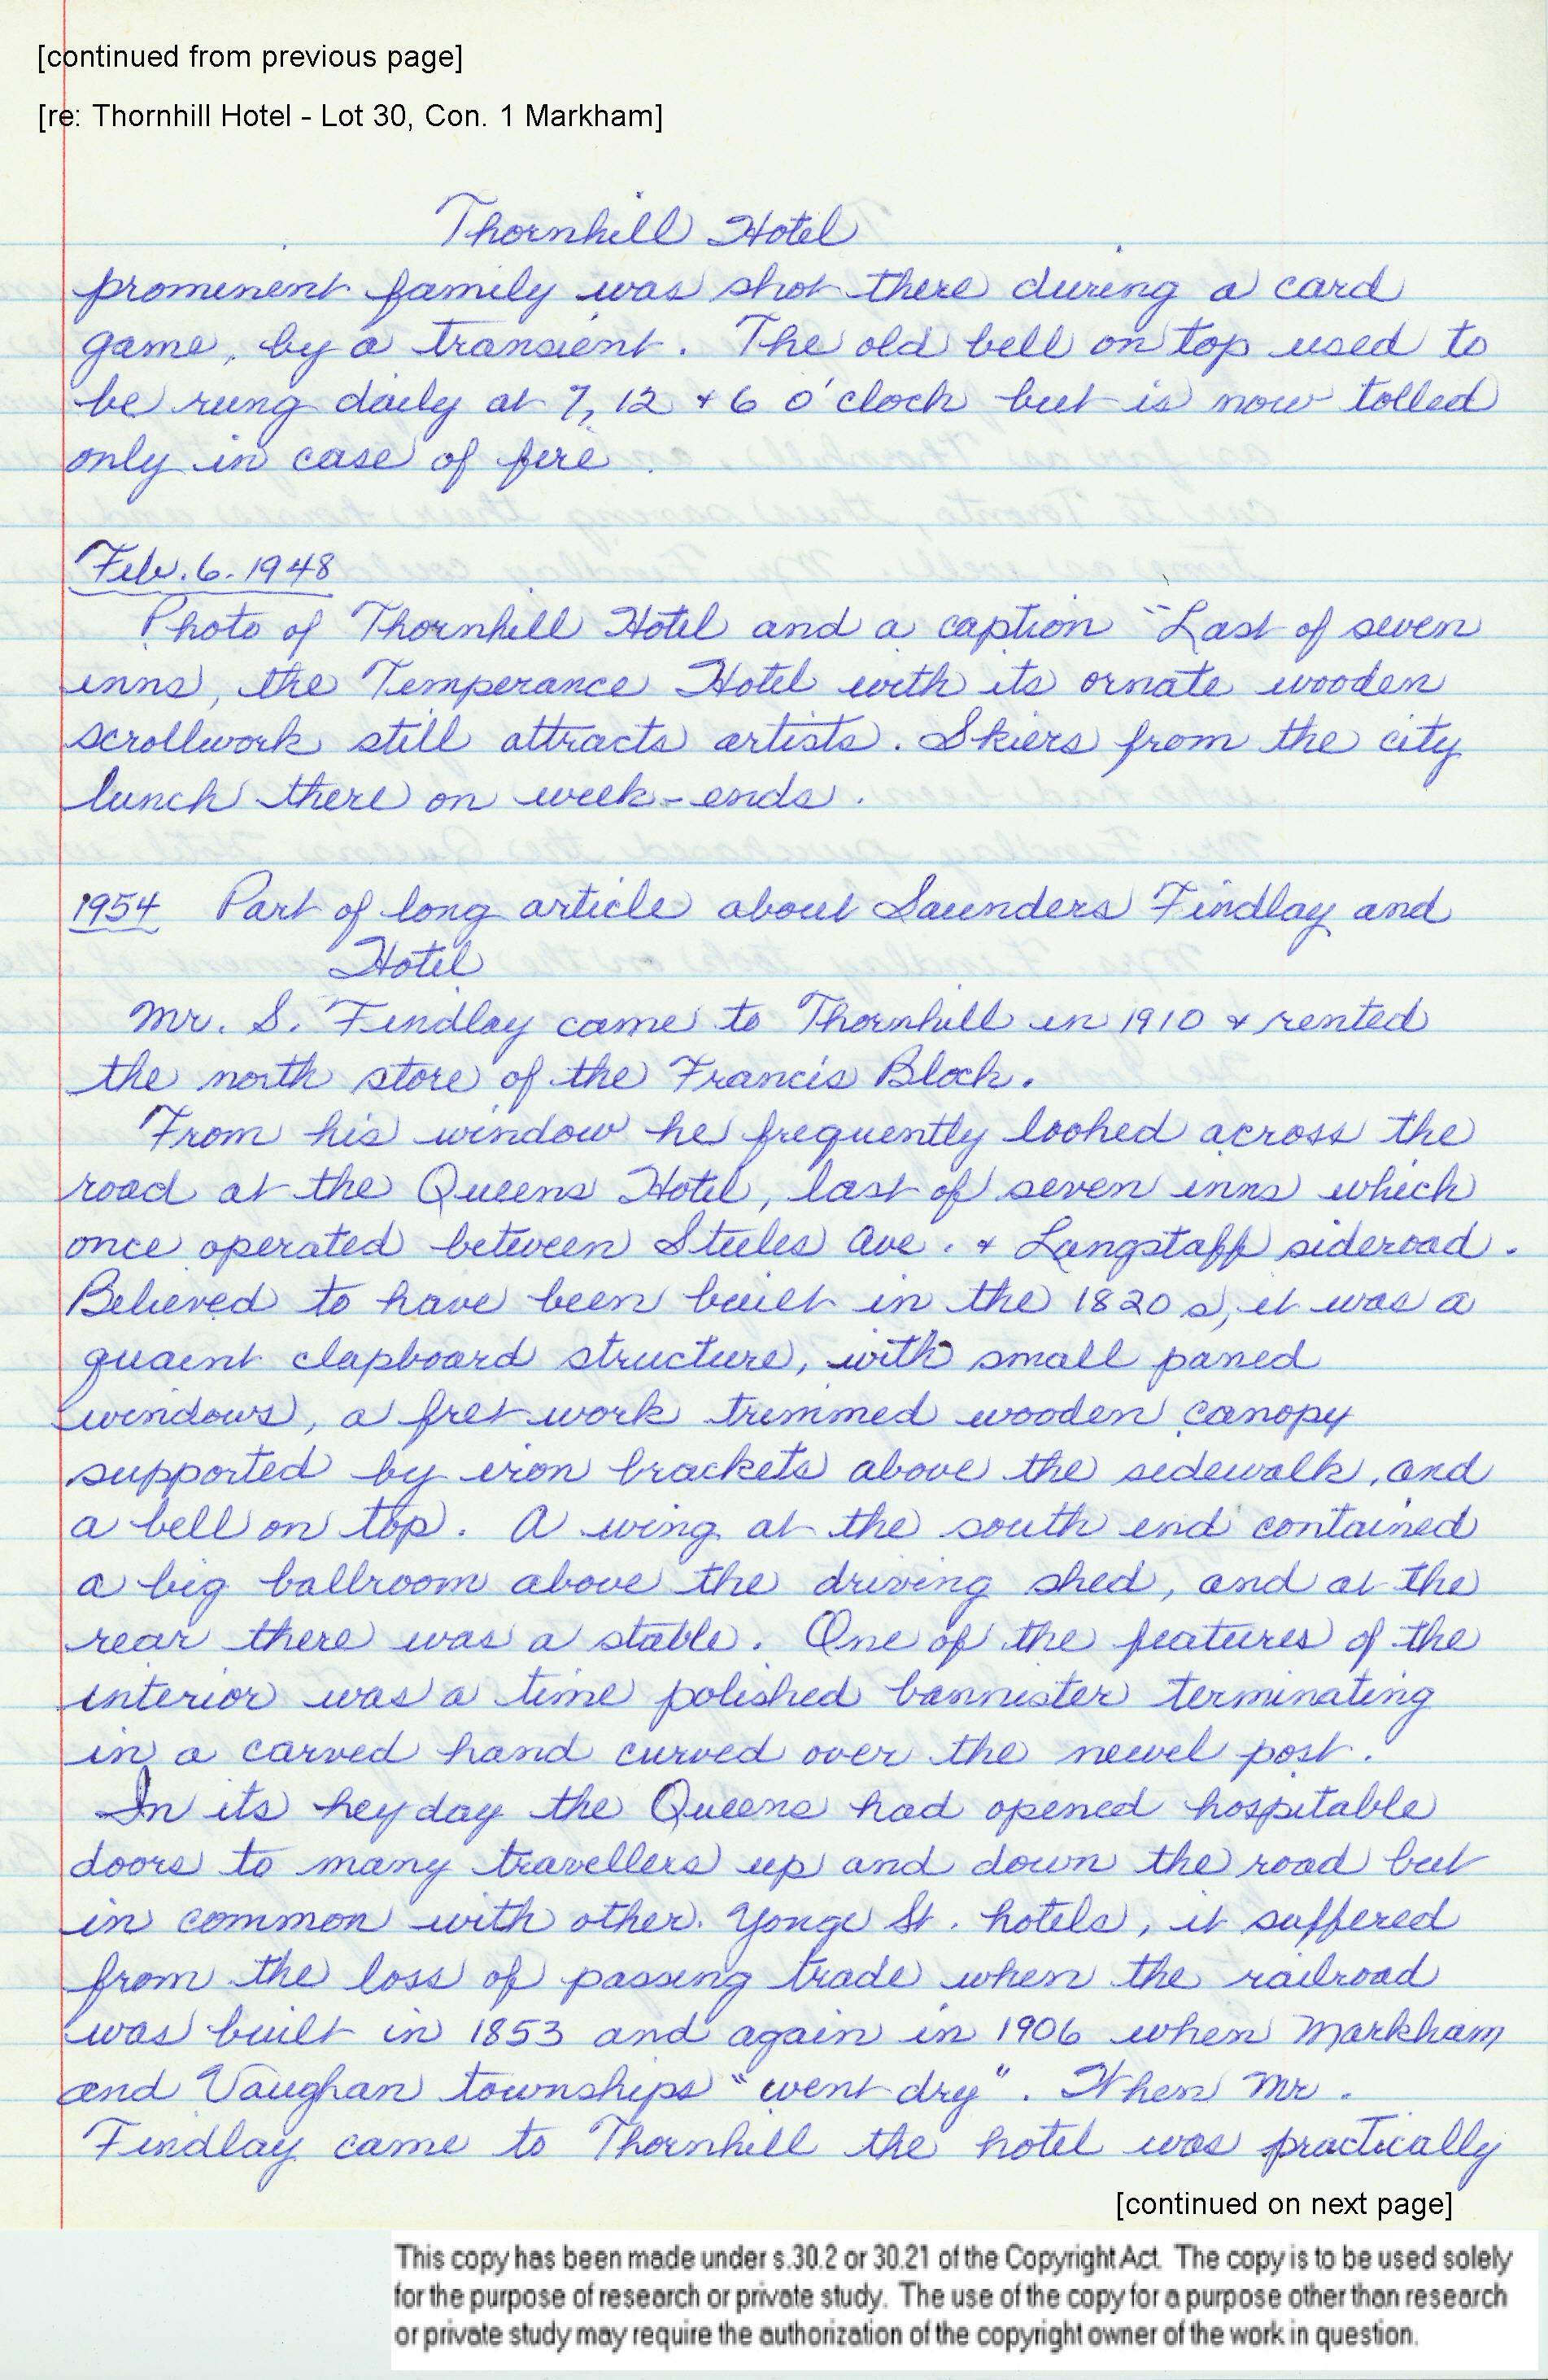 [continued from previous page]
[re: Thornhill Hotel - Lot 30, Con. 1 Markham]
Thornhill Hotel
prominent family was shot there during a card
game, by a transient. The old bell on top used to
be rung daily at 7, 12 + 6 o'clock but is now tolled
only in case of fire.
Feb. 6. 1948
Photo of Thornhill Hotel and a caption "Last of seven
inns, the Temperance Hotel with its ornate wooden
scrollwork still attracts artists. Skiers from the city
lunch there on week-ends.
1954 Part of long article about Saunders Findlay and
Hotel
Mr. S. Findlay came to Thornhill in 1910 + rented
the north store of the Francis Block.
From his window he frequently looked across the
road at the Queens Hotel, last of seven inns which
once operated between Steeles Ave. + Langstaff sideroad.
Believed to have been built in the 1820s, it was a
quaint clapboard structure, with small paned
windows, a fret work trimmed wooden canopy
supported by iron brackets above the sidewalk, and
a bell on top. A wing at the south end contained
a big ballroom above the driving shed, and at the
rear there was a stable. One of the features of the
interior was a time polished bannister terminating
in a carved hand curved over the newel post.
In its heyday the Queens had opened hospitable
doors to many travellers up and down the road but
in common with other Yonge St. hotels, it suffered
from the loss of passing trade when the railroad
was built in 1853 and again in 1906 when Markham
and Vaughan townships "went dry". When Mr.
Findlay came to Thornhill the hotel was practically
[continued on next page]
This copy has been made under s.30.2 or 30.21 of the Copyright Act. The copy is to be used solely
for the purpose of research or private study. The use of the copy for a purpose other than research
or private study may require the authorization of the copyright owner of the work in question.